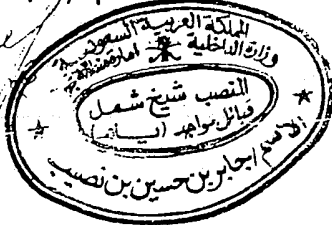 المملكة العربية السعودية
وزارة الداخلية
المنصب شيخ شمل
قبائل مواجد (يام)
الاسم / جابر بن حسين بن نصيب